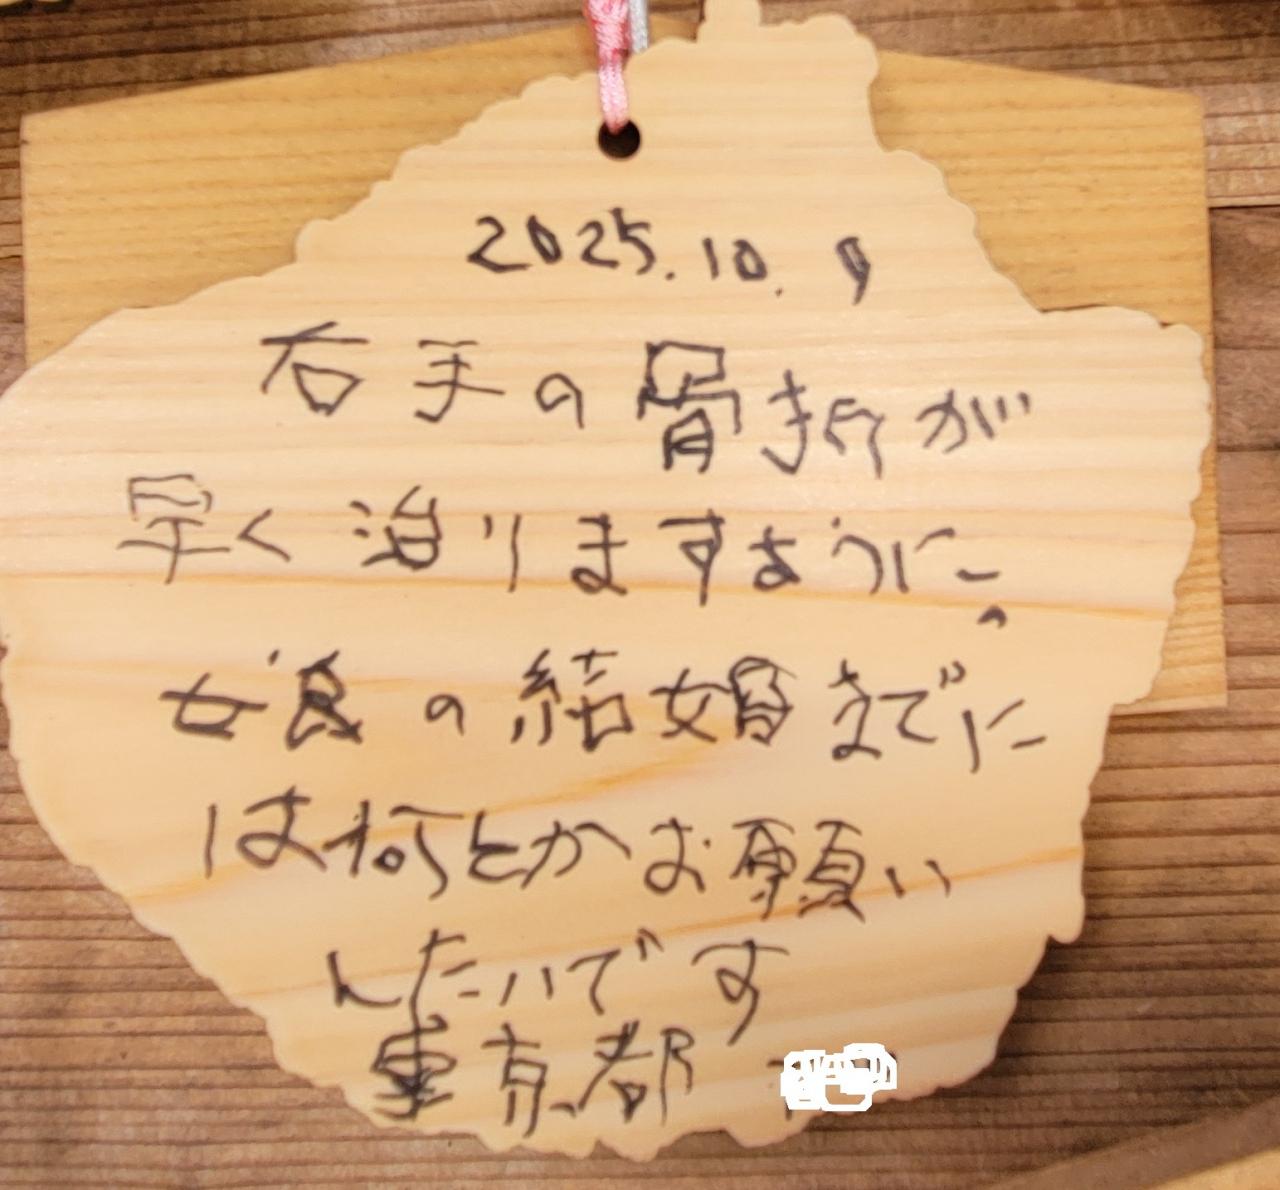 2025.10.9
右手の骨折が
早く治りますように。
娘の結婚までに
は何とかお願い
したいです
東京都